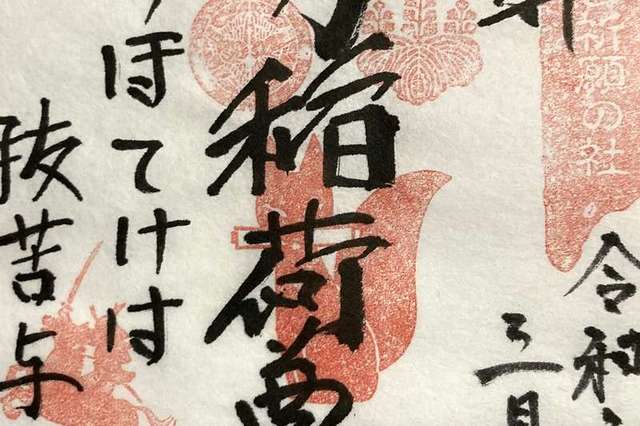 祈願の社
令和
三月
稲荷
ほてけは
抜苦与